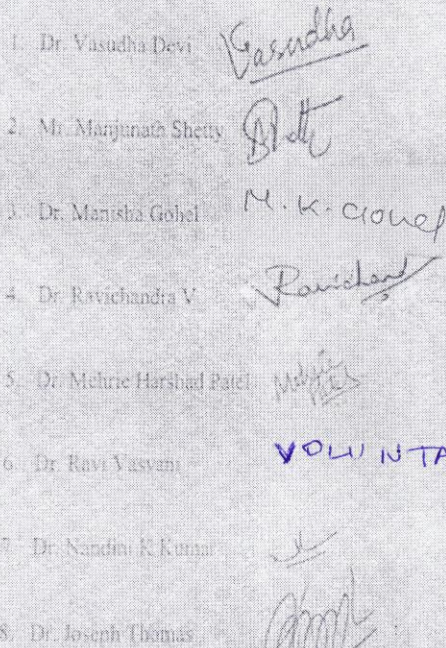 1. Dr. Vasudha Devi Vasudha
2. Mr. Manjunath Shetty
3. Dr. Manisha Gohel M. K. Gohel
4. Dr. Ravichandra V. Ravichand
5. Dr. Mehrie Harshad Patel
6. Dr. Ravi Vasvani VOLUNTA
7. Dr. Nandini K Kumar
8. Dr. Joseph Thomas